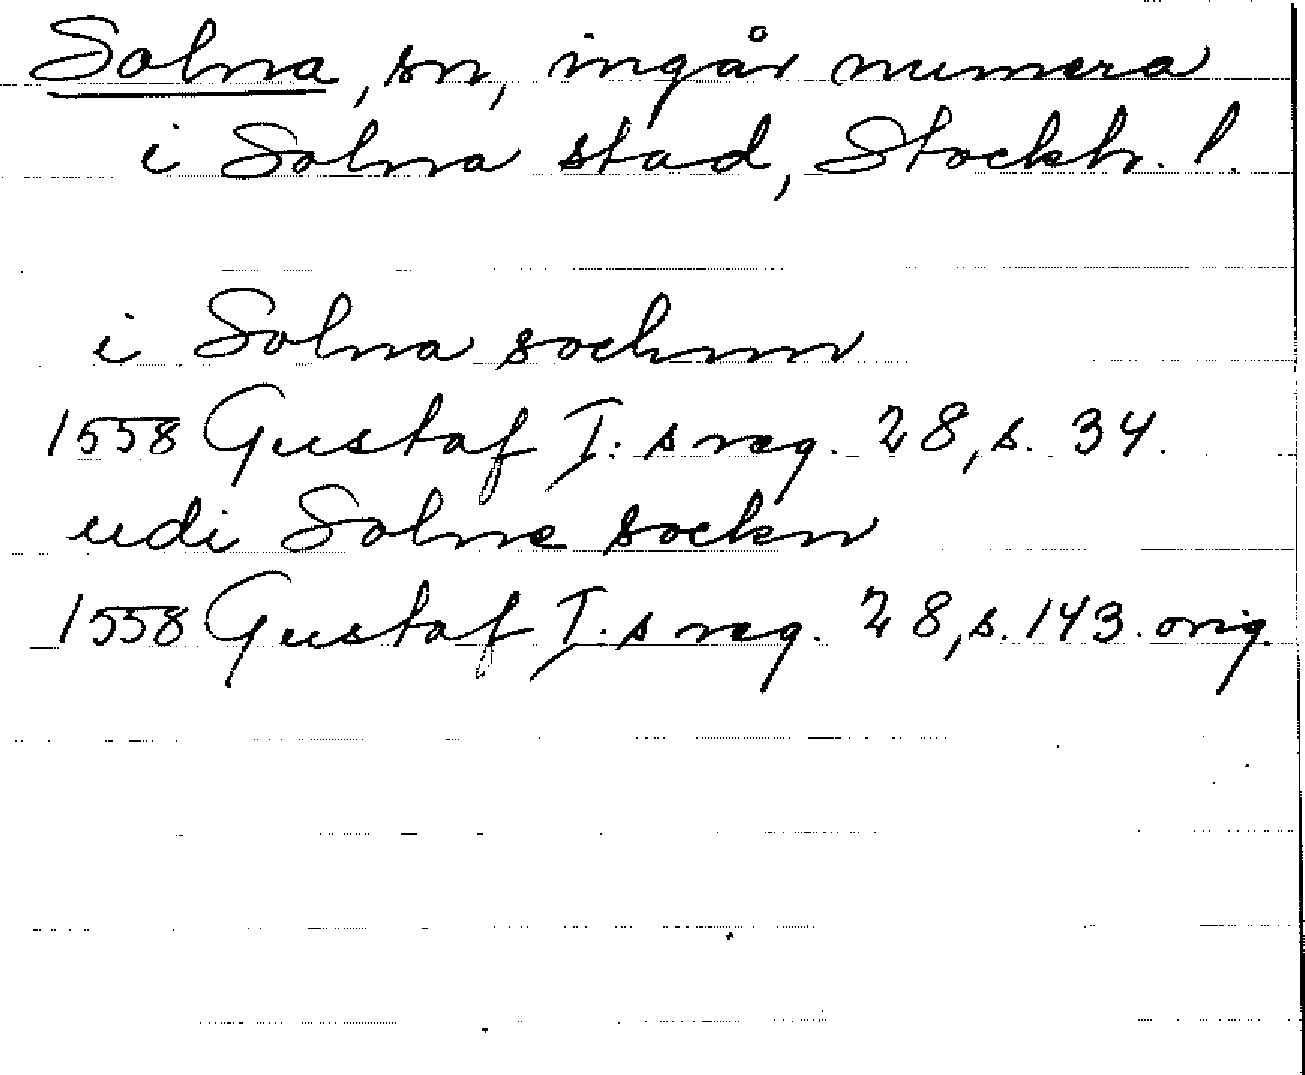 Solna, sn, ingår numera
i Solna stad, Stockh. l.
i Solna sochnn
1558 Gustaf I: s reg. 28, s. 34.
udi Solne sockn
1558 Gustaf I: s reg. 28, s. 143. orig.